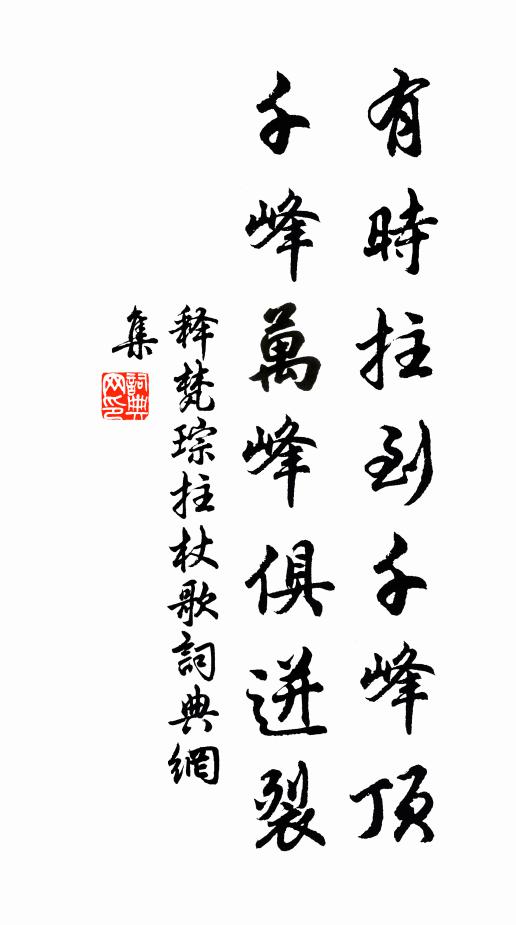 有時拄到千峰頂
千峰萬峰俱迸裂
释梵琮拄杖歌詞典網
集
詞典
网印